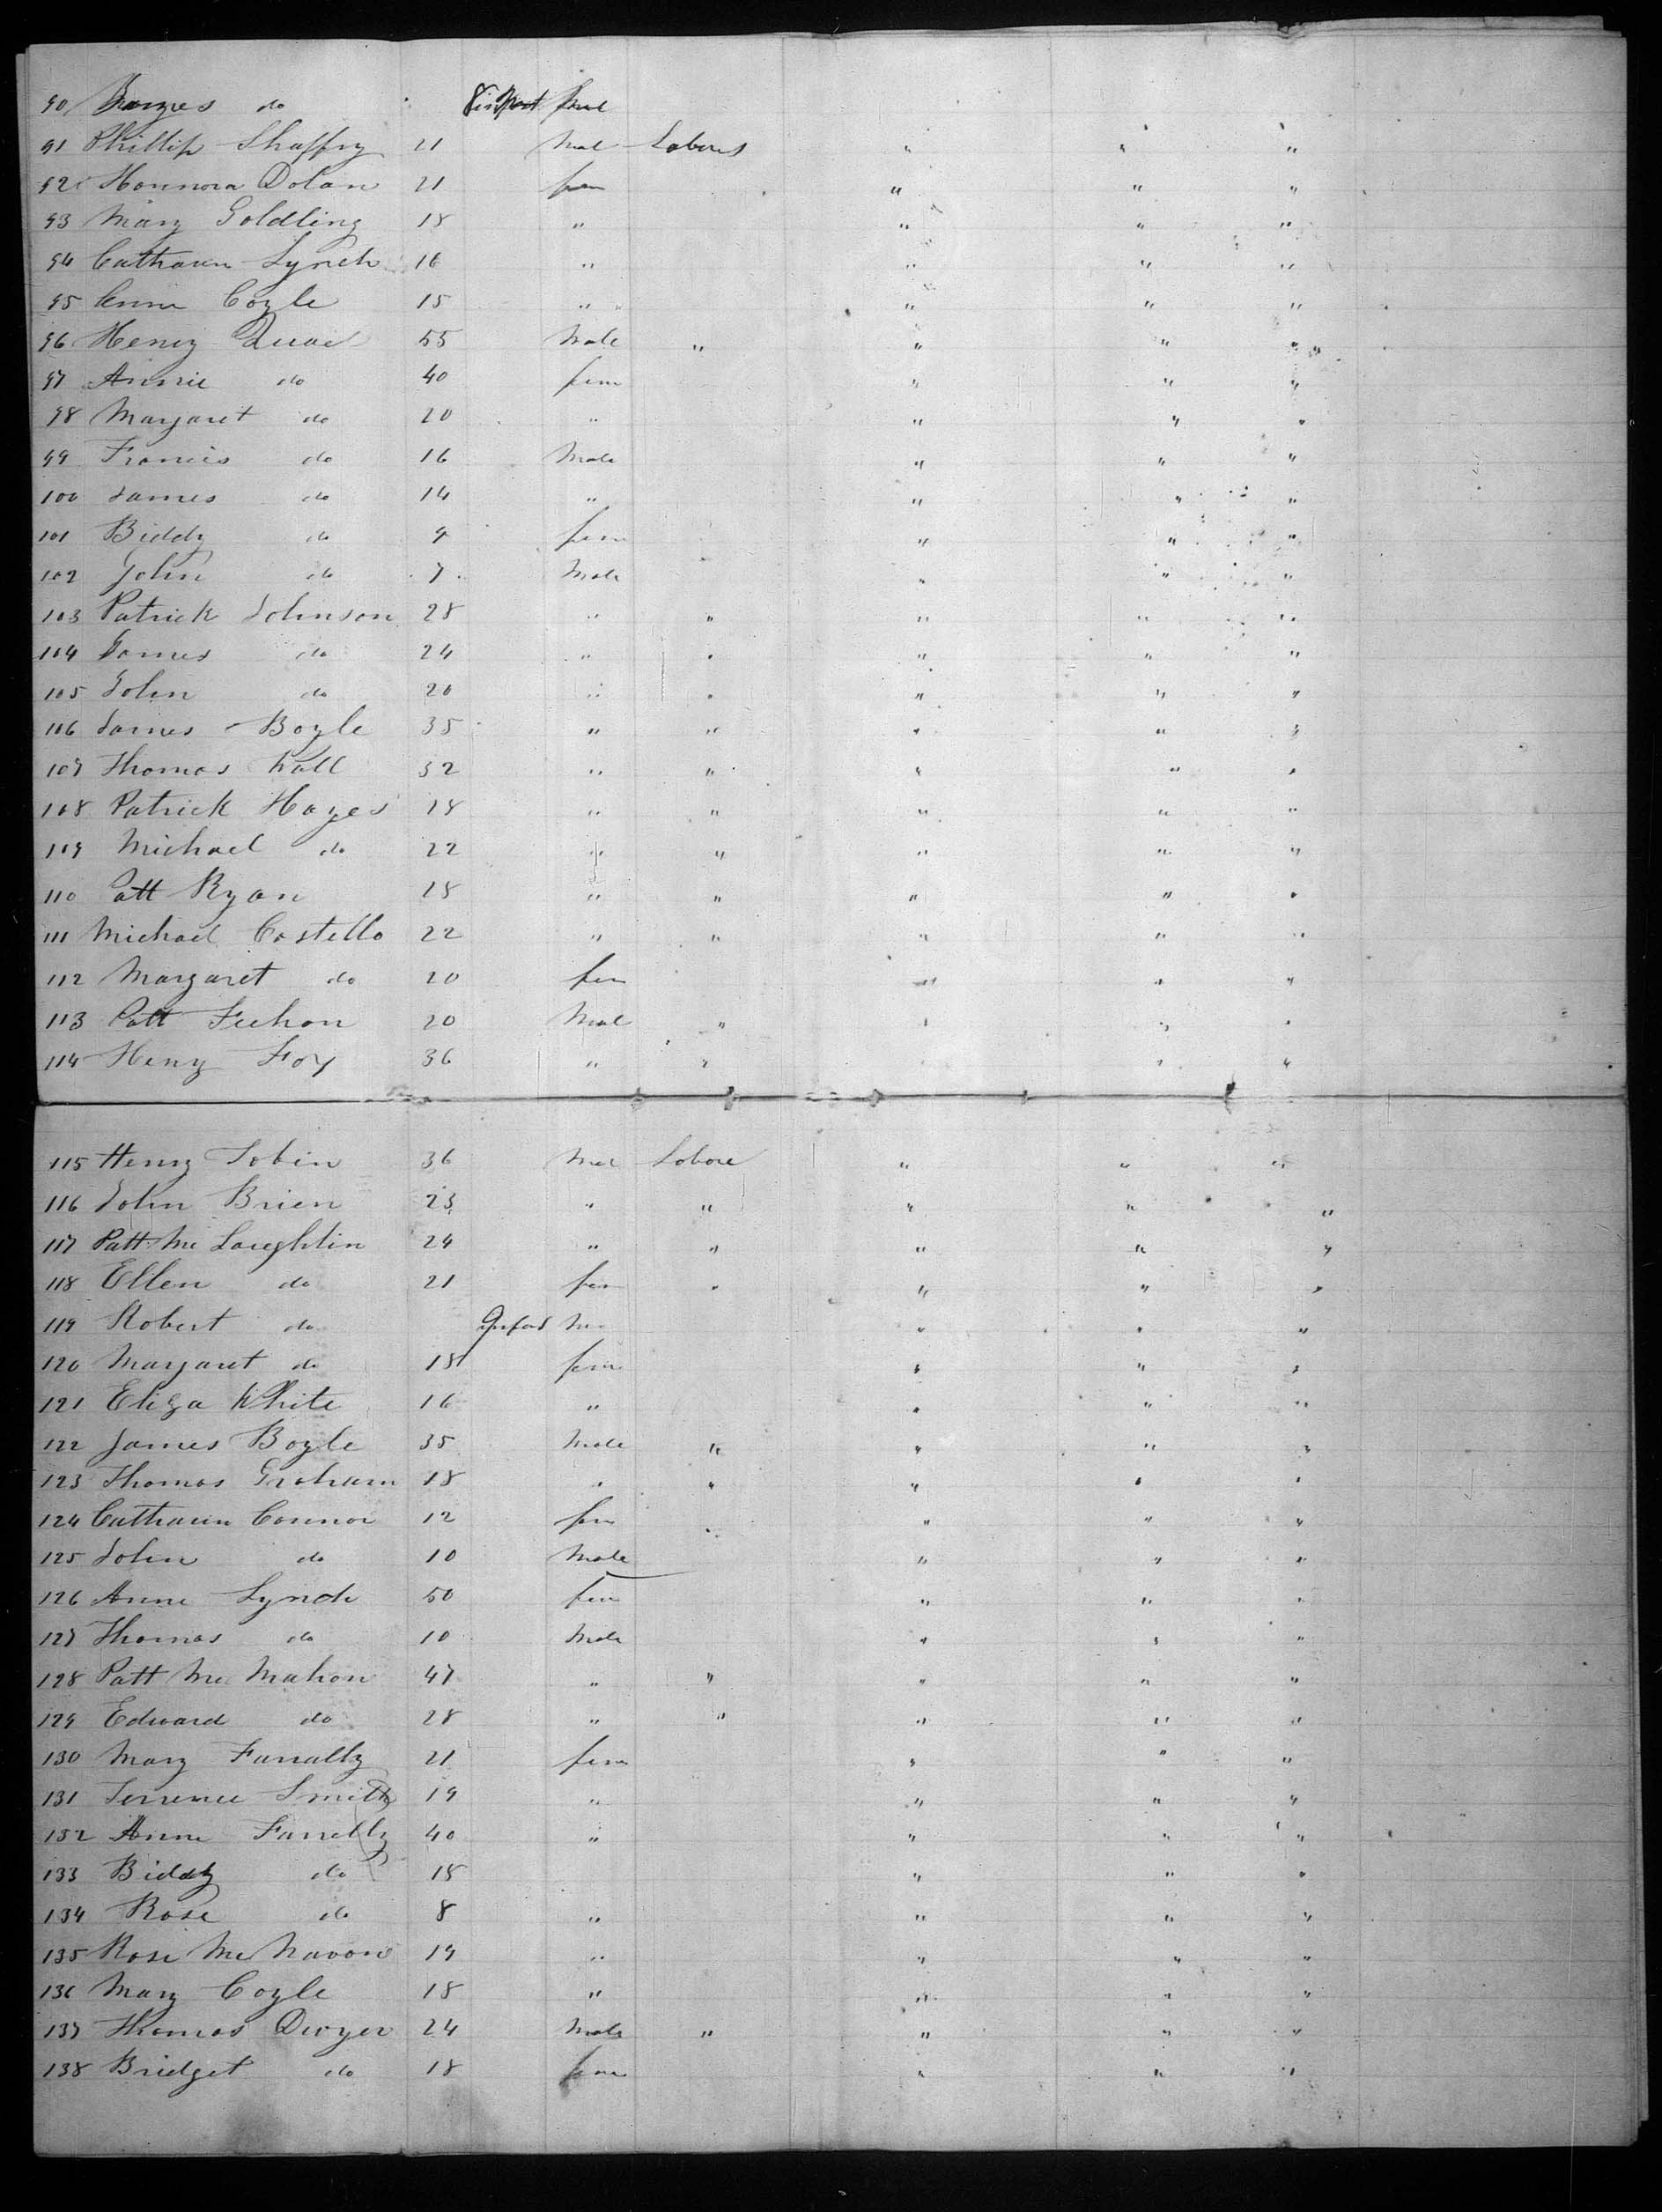 90 do
91 Phillip Shaffry 21 Mal Labores " " "
92 Honnora Dolan 21 fem " " "
93 Mary Goldling 18 " " " "
94 Catharin Lynch 16 " " " "
95 Anne Coyle 15 " " " "
96 Henry Quail 55 Male " " " "
97 Annie do 40 fem " " "
98 Margaret do 20 " " " "
99 Francis do 16 Male " " "
100 James do 14 " " " "
101 Biddy do 9 fem " " "
102 John do 7 Male " " "
103 Patrick Johnson 28 " " " " "
104 James do 24 " " " " "
105 John do 20 " " " " "
106 James Boyle 35 " " " " "
107 Thomas Wall 32 " " " " "
108 Patrick Hayes 18 " " " " "
109 Michael do 22 " " " " "
110 Patt Ryan 18 " " " " "
111 Michael Costello 22 " " " " "
112 Margaret do 20 fem " " "
113 Patt Feehon 20 Mal " " " "
114 Henry Foy 36 " " " " "
115 Henry Tobin 36 Mal Labore " " "
116 John Brien 23 " " " " "
117 Patt Mc Loughlin 24 " " " " "
118 Ellen do 21 fem " " " "
119 Robert do Infant Me " " "
120 Margaret do 18 fem " " "
121 Eliza White 16 " " " "
122 James Boyle 35 Male " " " "
123 Thomas Graham 18 " " " " "
124 Catharin Connor 12 fem " " "
125 John do 10 Male " " "
126 Anne Lynch 50 fem " " "
127 Thomas do 10 Male " " "
128 Patt Mc Mahon 47 " " " " "
129 Edward do 28 " " " " "
130 Mary Farrally 21 fem " " "
131 Terrence Smith 19 " " " "
132 Anne Farrelly 40 " " " "
133 Biddy do 18 " " "
134 Rose do 8 " " " "
135 Rose Mc 19 " " " "
136 Mary Coyle 18 " " " "
137 Thomas Dwyer 24 Male " " " "
138 Bridget do 18 fem " " "